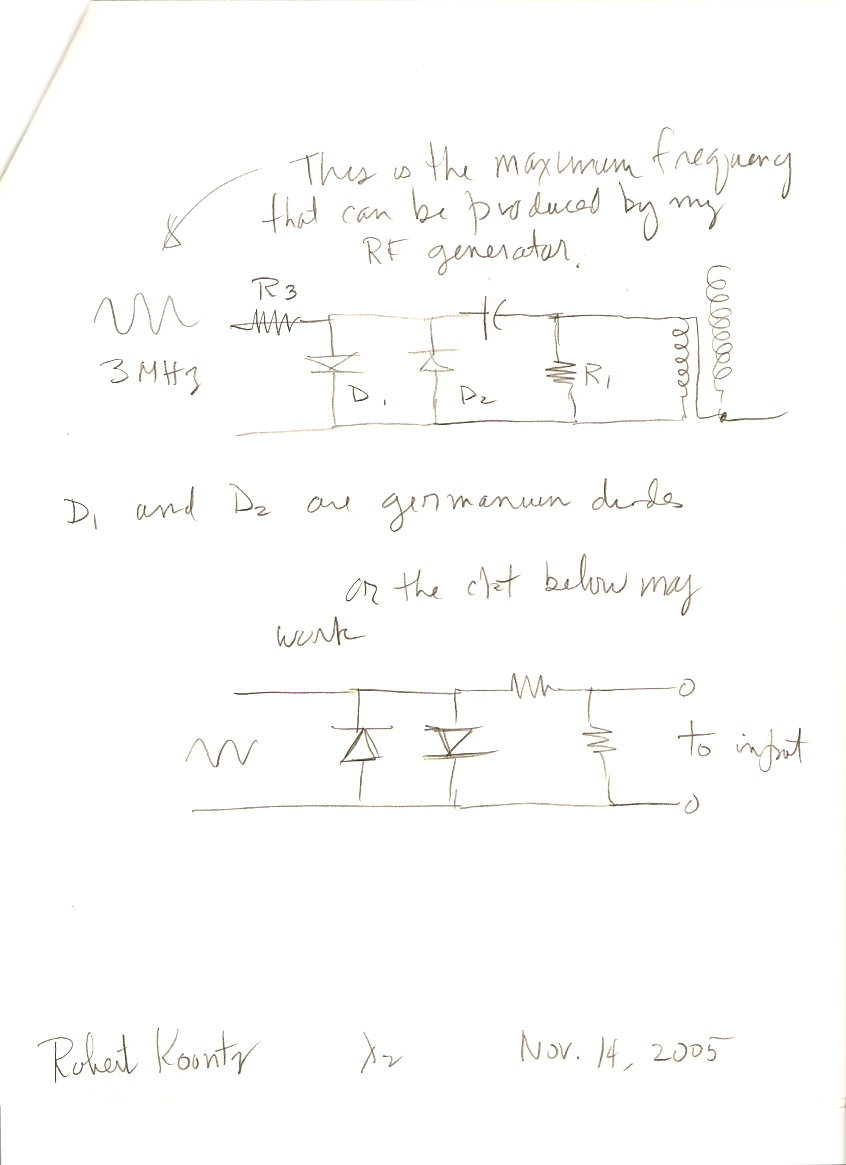 This is the maximum frequency
that can be produced by my
RF generator.
R3
3 MHz
D1
D2
R1
D1 and D2 are germanium diodes
or the ckt below may
work
to input
Robert Koontz
λ2
Nov. 14, 2005